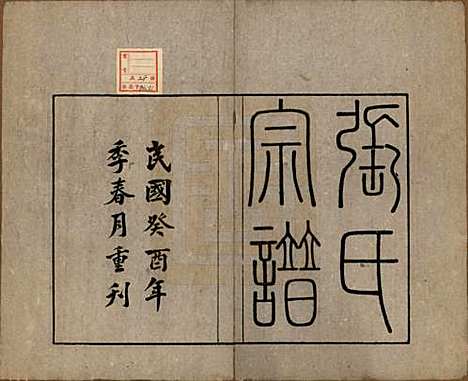 張氏
宗譜
民國癸酉年
季春月重刊